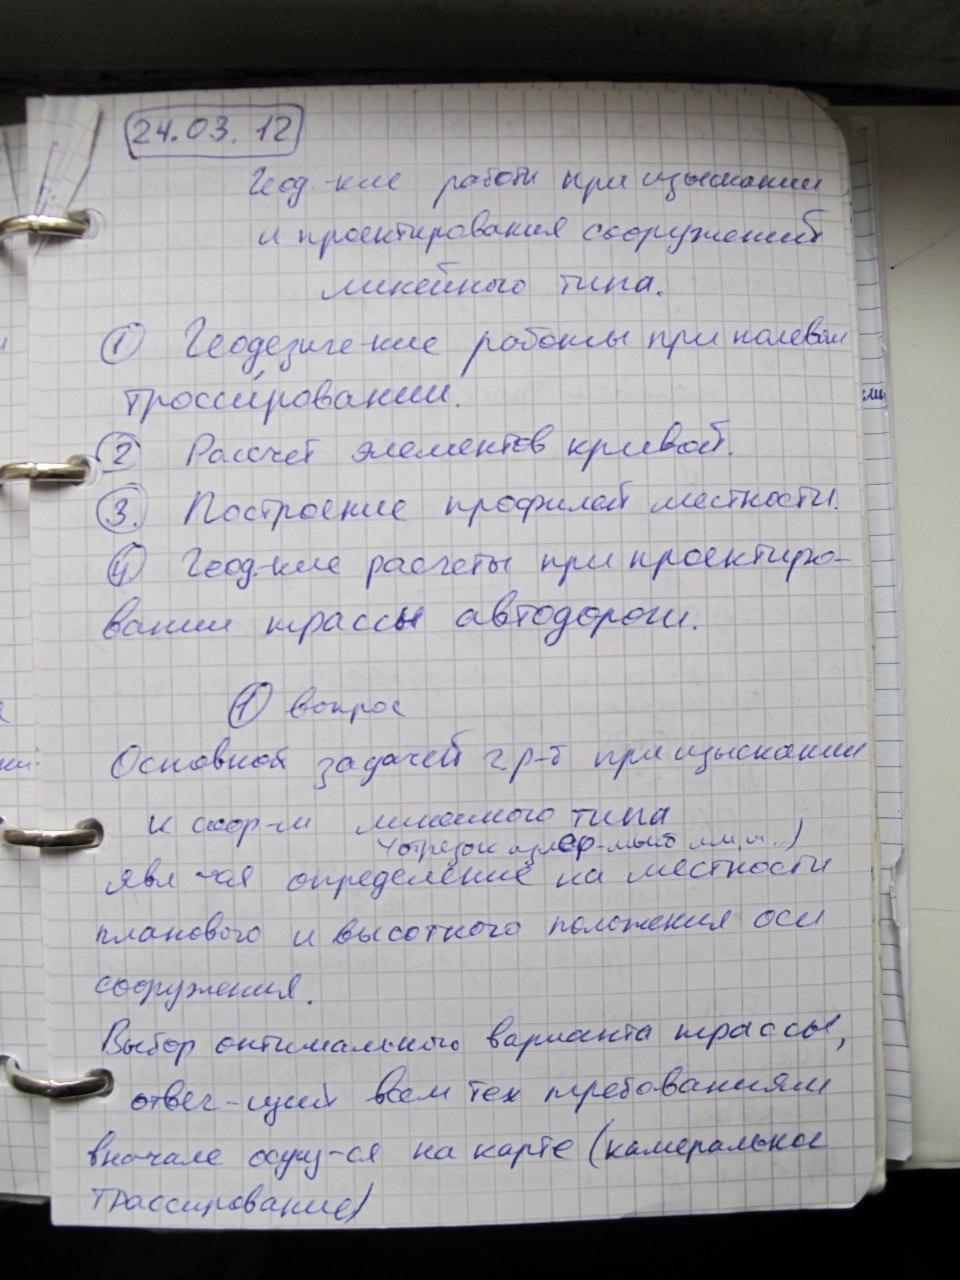 24.03.12
Геод.-кие работы при изыскании
и проектирования сооружений
линейного типа.
① Геодезиче-кие работы при полевом
троссировании.
② Рассчет элементов кривой.
③. Построение профилей местности.
④ Геод-кие расчеты при проектиро-
вании трассы автодороги.
① вопрос
Основной задачей г.р-т при изыскании
и соор-и линейного типа
(отрезок
явл-ся определение на местности
планового и высотного положения оси
сооружения.
Выбор оптимального варианта трассы,
отвеч-щий всем тех требованиям
вначале осущ-ся на карте (камеральное
трассирование)